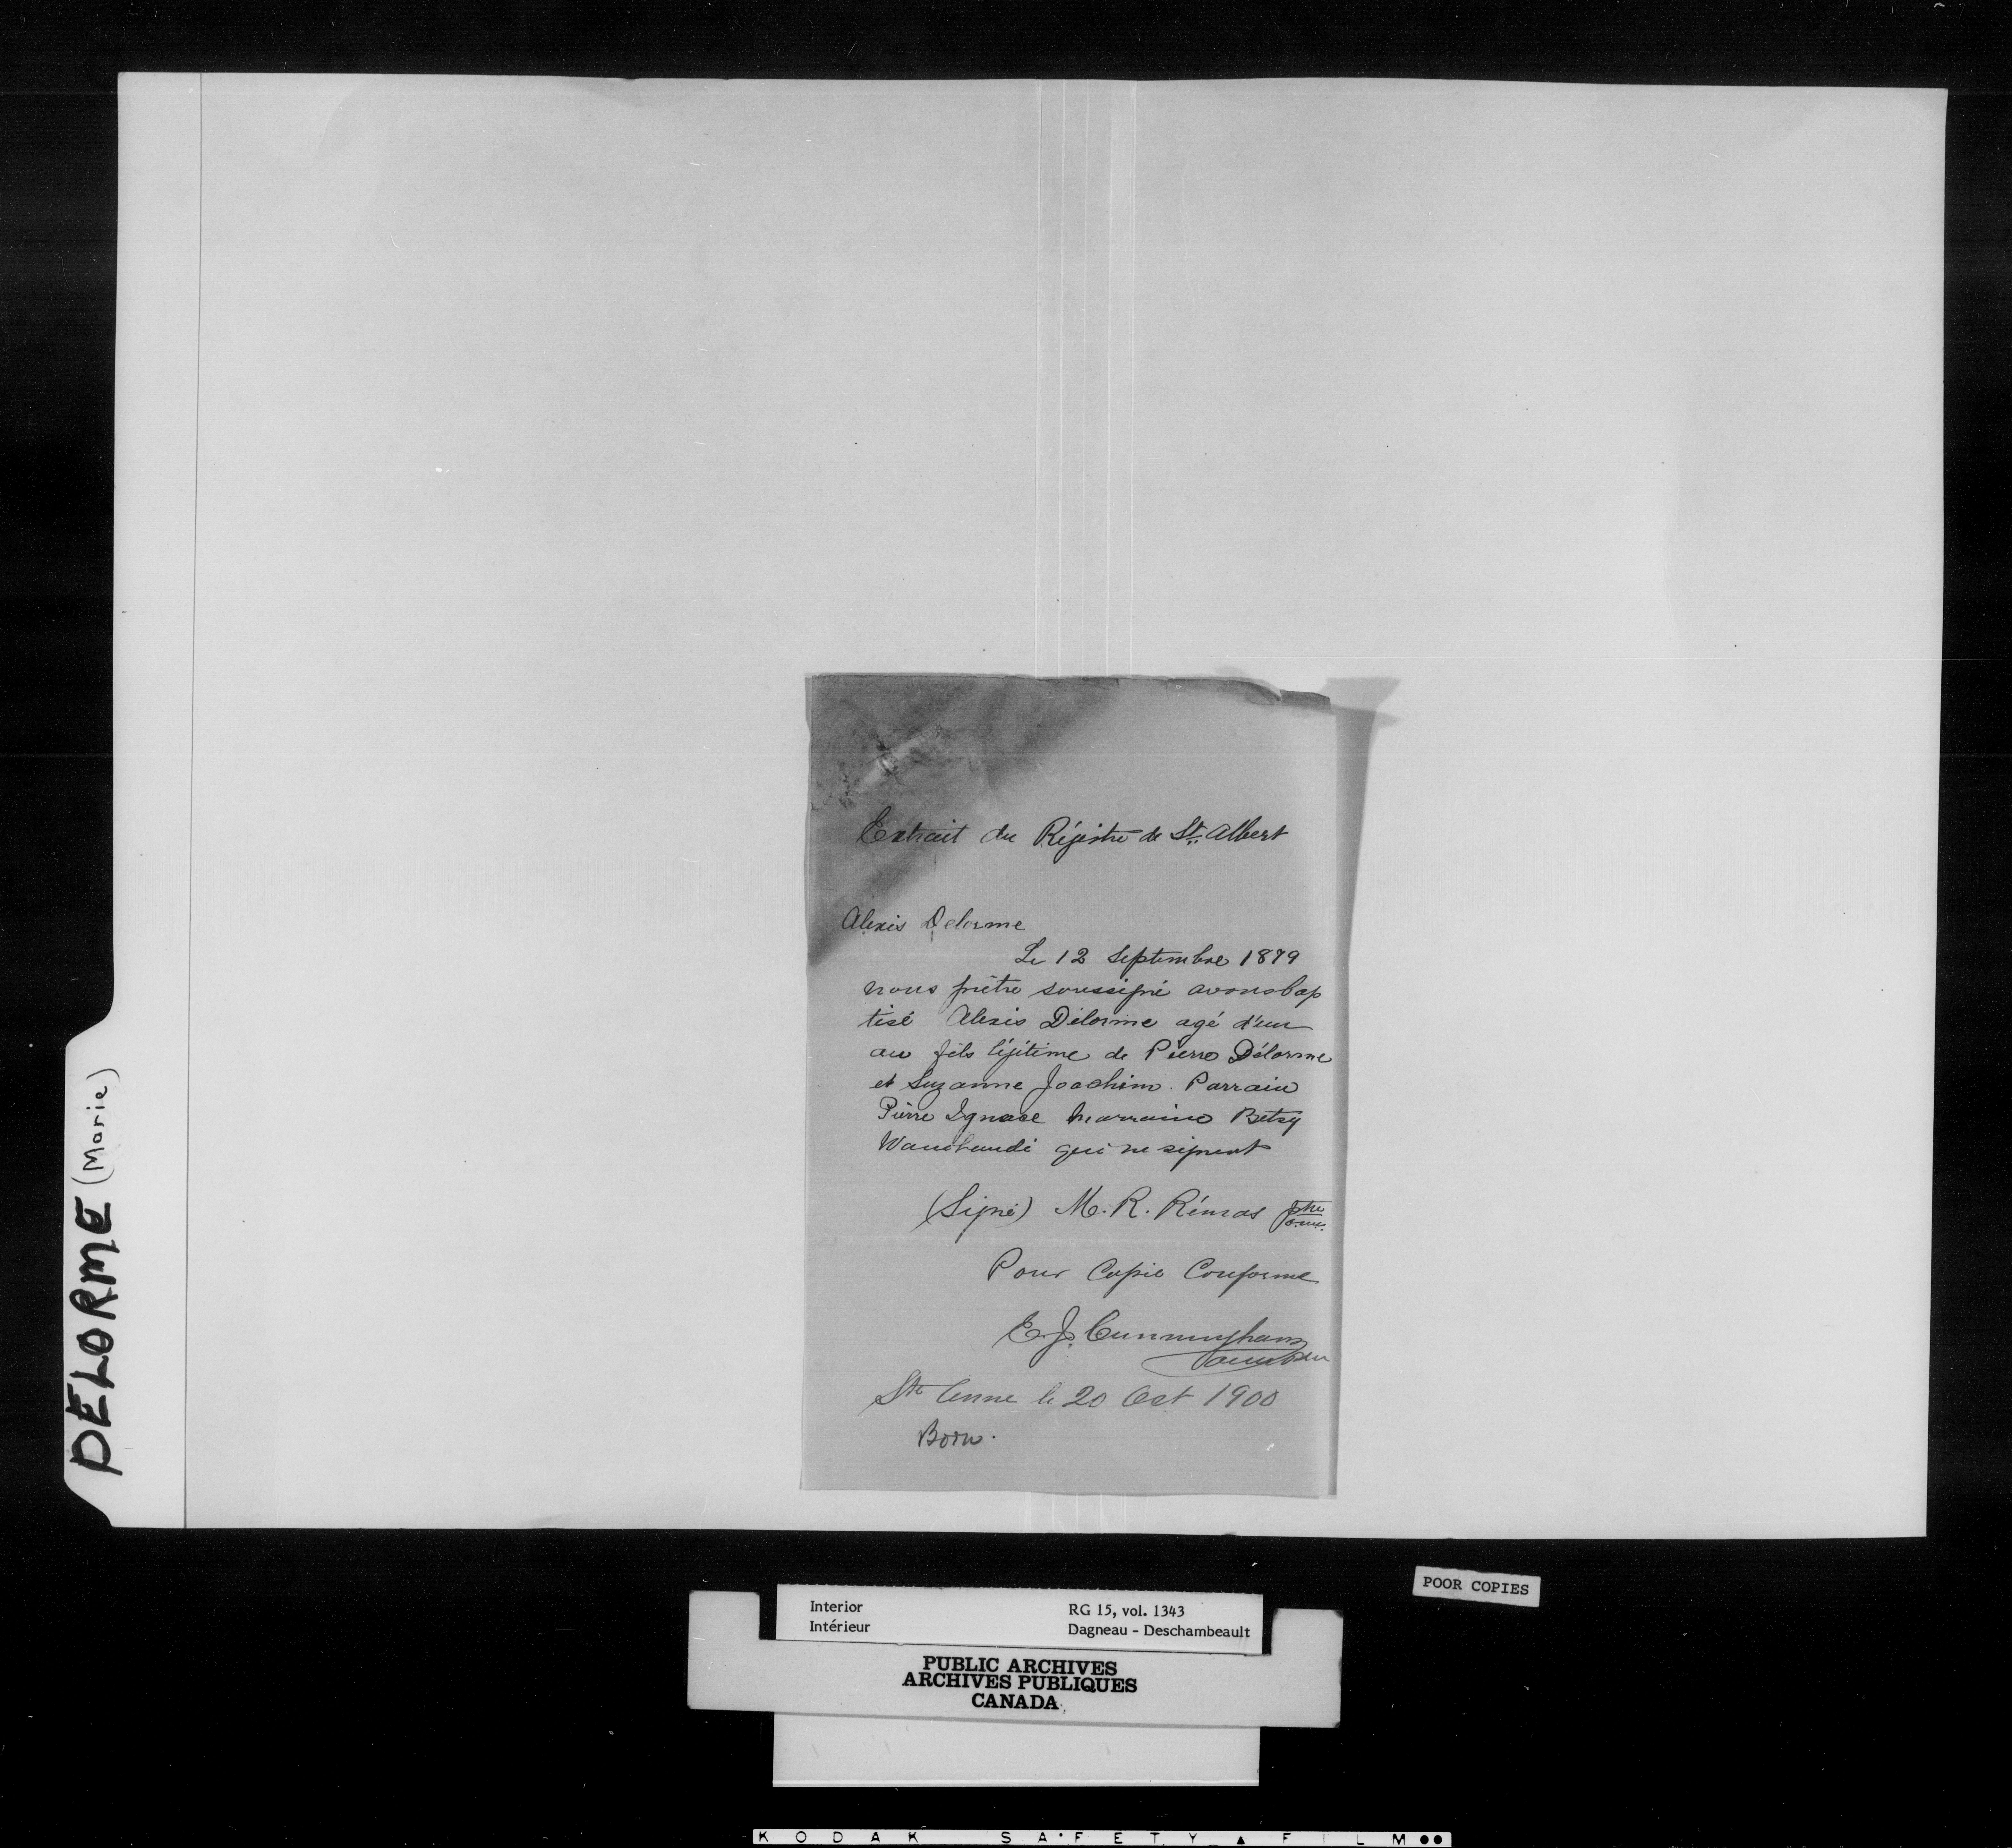 Extrait du Régistre de St. Albert
Alexis Delorme
Le 12 Septembre 1879
nous prêtre soussigné avons bap
tisé Alexis Délorme agé d'un
an fils légitime de Pierre Délorme
et Suzanne Joachim. Parrain
Pierre Ignace Marraine Betsy
qui ne signent
(Signé) M. R. Rémas ptre
o.m.i.
Pour Copie Conforme
E. J. Cunningham
Ste Anne le 20 Oct 1900
Born.
DELORME (Marie)
POOR COPIES
Interior RG 15, vol. 1343
Intérieur Dagneau - Deschambeault
PUBLIC ARCHIVES
ARCHIVES PUBLIQUES
CANADA
KODAK SAFETY FILM